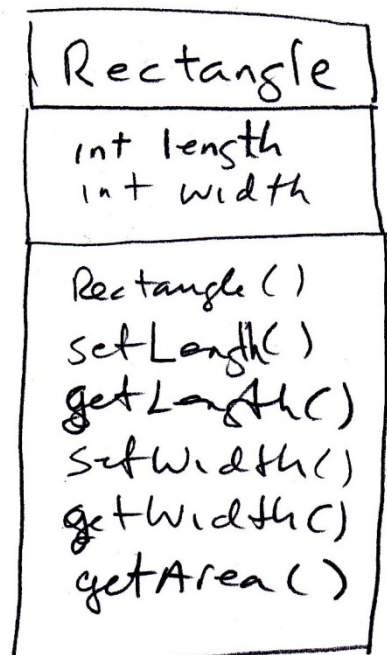 Rectangle
int length
int width
Rectangle()
setLength()
getLength()
setWidth()
getWidth()
getArea()